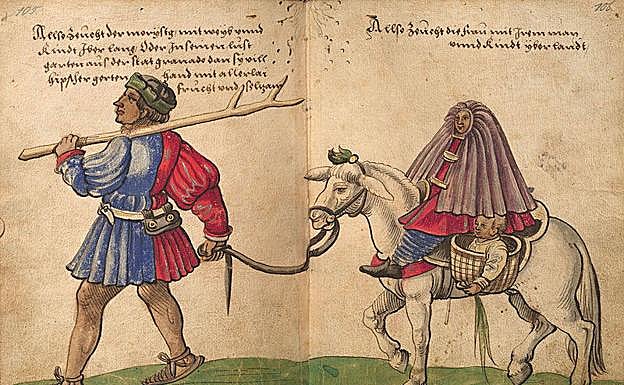 105
Allso zeucht der morysg mit weyb unnd
kindt Iber lang Oder In seinen lust
garten aus der stat granade dan sy vill
hipscher gerten hand mit allerlai
frucht und selzam
106
Allso Zeucht die frau mit Irem man
unnd kindt yber landt